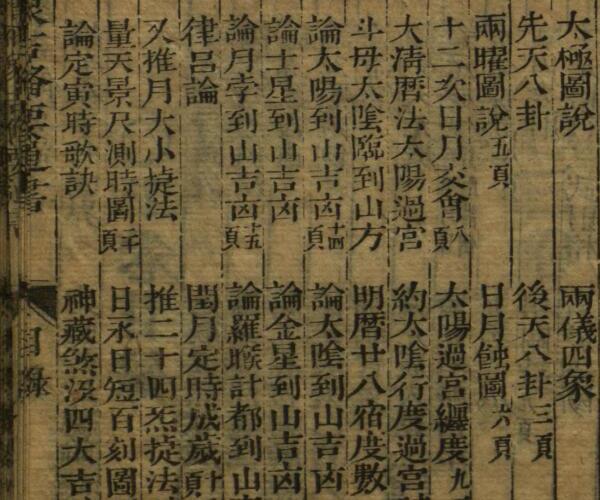 太極圖說 兩儀四象
先天八卦 後天八卦三頁
兩曜圖說五頁 日月蝕圖六頁
十二次日月交會八頁 太陽過宮纏度九
大清暦法太陽過宮 約太陰行度過宮
斗母太陰臨到山方 明暦廿八宿度數
論太陽到山吉凶十四頁 論太陰到山吉凶
論土星到山吉凶 論金星到山吉凶
論月孛到山吉凶十五頁 論羅睺計都到山
律呂論 閏月定時成歲
又推月大小㨗法 推二十四炁㨗法
量天景尺測時圖二十頁 日永日短百刻圖
論定寅時歌訣 神藏煞没四大吉
通書 目錄